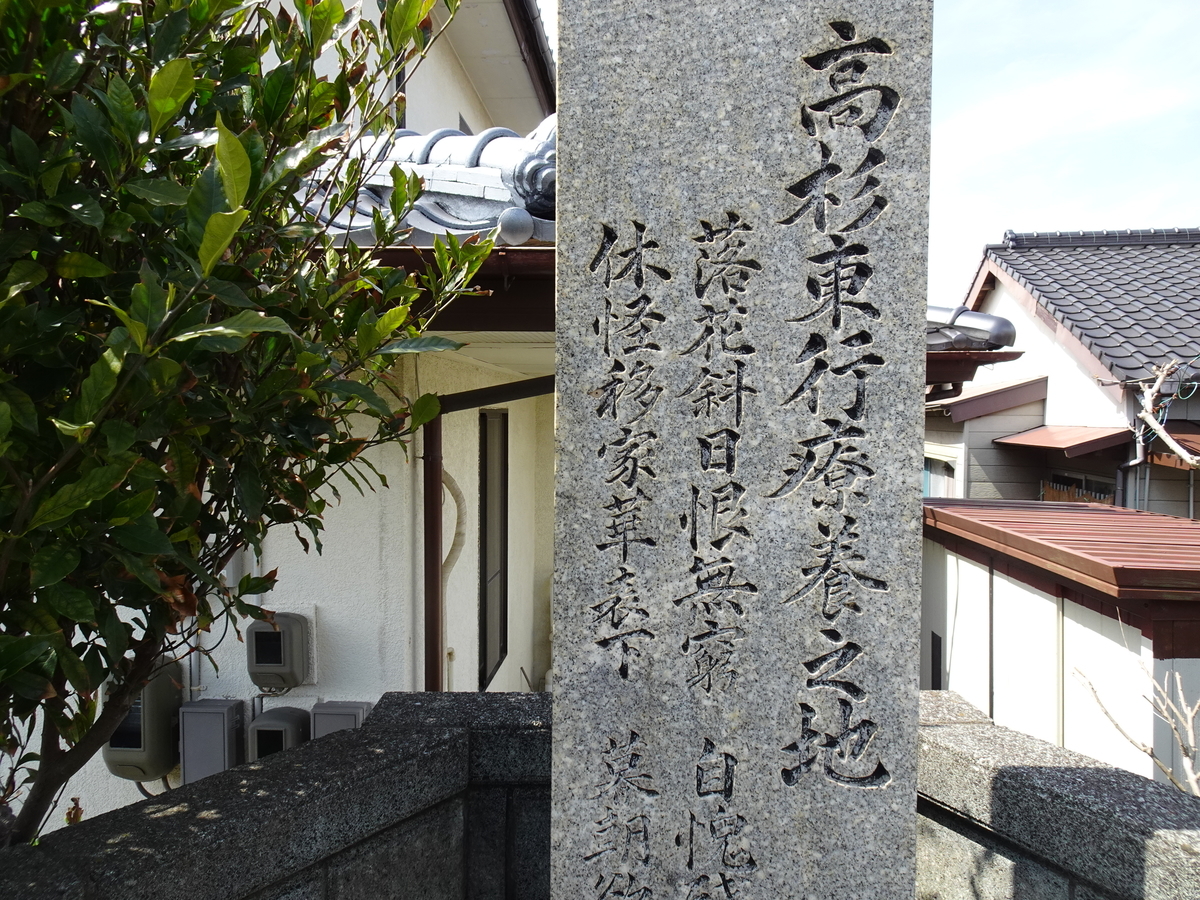 高杉東行療養之地
落花斜日恨無窮　自愧
休怪移家華表下　莫朝